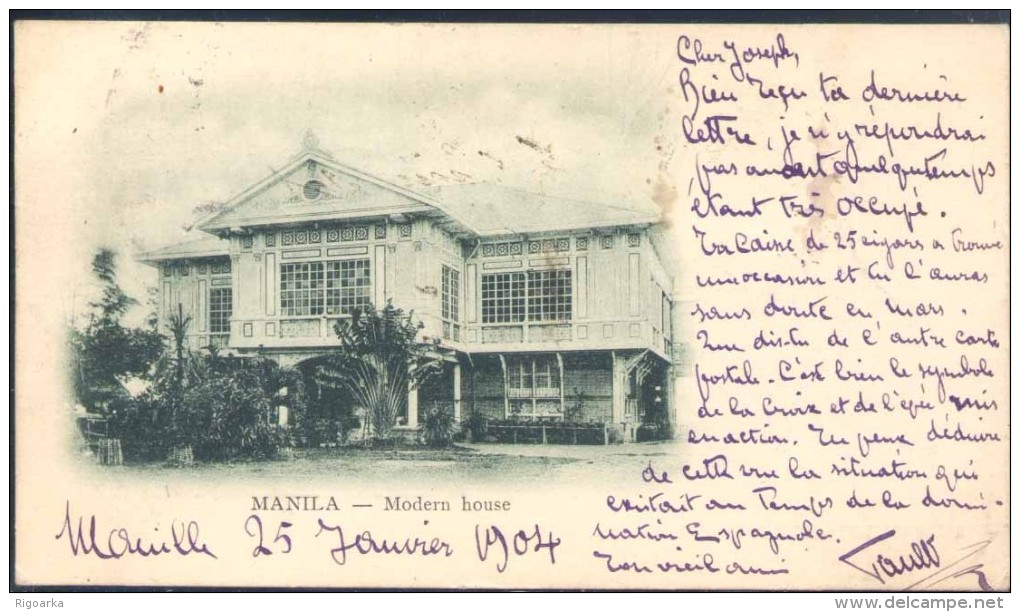 Cher Joseph,
Bien reçu ta dernière
lettre, je n'y répondrai
pas avant quelque temps
étant très occupé.
Ta caisse de 25 cigars a trouvé
une occasion et tu l'auras
sans doute en mars.
Que dis-tu de l'autre carte
postale. C'est bien le symbole
de la Croix et de l'épée mis
en action. Tu peux déduire
de cette vue la situation qui
existait au temps de la domi-
nation Espagnole.
Ton vieil ami
MANILA — Modern house
Manille 25 Janvier 1904
Rigoarka
www.delcampe.net